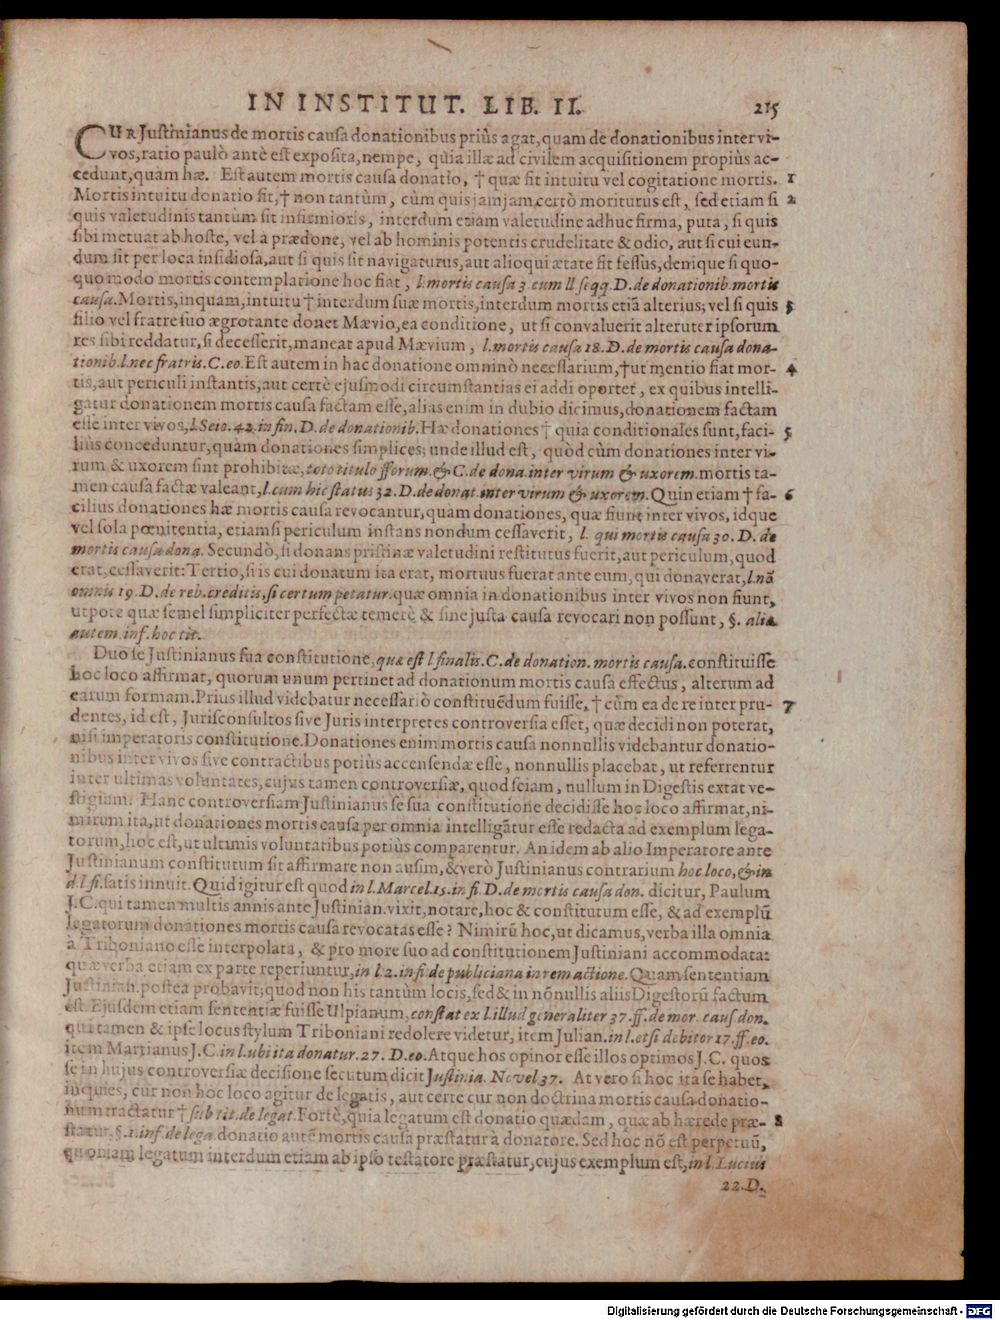 IN INSTITUT. LIB. II. 215
CUR Justinianus de mortis causa donationibus priùs agat, quam de donationibus inter vi-
vos, ratio paulò antè est exposita, nempe, quia illæ ad civilem acquisitionem propiùs ac-
cedunt, quam hæ. Est autem mortis causa donatio, † quæ fit intuitu vel cogitatione mortis. 1
Mortis intuitu donatio fit, † non tantùm, cùm quis jamjam certò moriturus est, sed etiam si 2
quis valetudinis tantùm sit infirmioris, interdum etiam valetudine adhuc firma, puta, si quis
sibi metuat ab hoste, vel à prædone, vel ab hominis potentis crudelitate & odio, aut si cui eun-
dum sit per loca insidiosa, aut si quis sit navigaturus, aut alioqui ætate sit fessus, denique si quo-
quo modo mortis contemplatione hoc fiat, l. mortis causa 3. cum ll. seqq. D. de donationib. mortis
causa. Mortis, inquam, intuitu † interdum suæ mortis, interdum mortis etiã alterius; vel si quis 3
filio vel fratre suo ægrotante donet Mævio, ea conditione, ut si convaluerit alteruter ipsorum
res sibi reddatur, si decesserit, maneat apud Mævium, l. mortis causa 18. D. de mortis causa dona-
tionib. l. nec fratris. C. eo. Est autem in hac donatione omninò necessarium, † ut mentio fiat mor- 4
tis, aut periculi instantis, aut certè ejusmodi circumstantias ei addi oportet, ex quibus intelli-
gatur donationem mortis causa factam esse, alias enim in dubio dicimus, donationem factam
esse inter vivos, l. Seio. 42. in fin. D. de donationib. Hæ donationes † quia conditionales sunt, faci- 5
liùs conceduntur, quàm donationes simplices; unde illud est, quòd cùm donationes inter vi-
rum & uxorem sint prohibitæ, toto titulo fforum. & C. de dona. inter virum & uxorem. mortis ta-
men causa factæ valeant, l. cum hic status 32. D. de donat. inter virum & uxorem. Quin etiam † fa- 6
cilius donationes hæ mortis causa revocantur, quam donationes, quæ fiunt inter vivos, idque
vel sola pœnitentia, etiamsi periculum instans nondum cessaverit, l. qui mortis causa 30. D. de
mortis causa dona. Secundò, si donans pristinæ valetudini restitutus fuerit, aut periculum, quod
erat, cessaverit: Tertio, si is cui donatum ita erat, mortuus fuerat ante eum, qui donaverat, l. nã
omnis 19. D. de reb. creditis, si certum petatur. quæ omnia in donationibus inter vivos non fiunt,
utpote quæ semel simpliciter perfectæ temerè & sine justa causa revocari non possunt, §. aliæ
autem. inf. hoc tit.
Duo se Justinianus sua constitutione, quæ est l. finalis. C. de donation. mortis causa. constituisse
hoc loco affirmat, quorum unum pertinet ad donationum mortis causa effectus, alterum ad
earum formam. Prius illud videbatur necessariò constituẽdum fuisse, † cũm ea de re inter pru- 7
dentes, id est, Jurisconsultos sive Juris interpretes controversia esset, quæ decidi non poterat,
nisi imperatoris constitutione. Donationes enim mortis causa nonnullis videbantur donatio-
nibus inter vivos sive contractibus potiùs accensendæ esse, nonnullis placebat, ut referrentur
inter ultimas voluntates, cujus tamen controversiæ, quod sciam, nullum in Digestis extat ve-
stigium. Hanc controversiam Justinianus se sua constitutione decidisse hoc loco affirmat, ni-
mirum ita, ut donationes mortis causa per omnia intelligãtur esse redacta ad exemplum lega-
torum, hoc est, ut ultimis voluntatibus potiùs comparentur. An idem ab alio Imperatore ante
Justinianum constitutum sit affirmare non ausim, & verò Justinianus contrarium hoc loco, & in
d. l. fi. satis innuit. Quid igitur est quod in l. Marcel. 15. in fi. D. de mortis causa don. dicitur, Paulum
J.C. qui tamen multis annis ante Justinian. vixit, notare, hoc & constitutum esse, & ad exemplũ
legatorum donationes mortis causa revocatas esse? Nimirũ hoc, ut dicamus, verba illa omnia
à Triboniano esse interpolata, & pro more suo ad constitutionem Justiniani accommodata:
quæ verba etiam ex parte reperiuntur, in l. 2. in fi. de publiciana in rem actione. Quam sententiam
Justinian. postea probavit; quod non his tantùm locis, sed & in nõnullis aliis Digestorũ factum
est. Ejusdem etiam sententiæ fuisse Ulpianum, constat ex l. illud generaliter 37. ff. de mor. caus. don.
qui tamen & ipse locus stylum Triboniani redolere videtur, item Julian. in l. etsi debitor 17. ff. eo.
item Martianus J.C. in l. ubi ita donatur. 27. D. eo. Atque hos opinor esse illos optimos J.C. quos
se in hujus controversiæ decisione secutum dicit Justinia. Novel 37. At vero si hoc ita se habet,
inquies, cur non hoc loco agitur de legatis, aut certe cur non doctrina mortis causa donatio-
num tractatur † sub tit. de legat. Fortè, quia legatum est donatio quædam, quæ ab hærede præ- 8
statur, §. 1. inf. de lega. donatio autẽ mortis causa præstatur à donatore. Sed hoc nõ est perpetuũ,
quoniam legatum interdum etiam ab ipso testatore præstatur, cujus exemplum est, in l. Lucius
22. D.
Digitalisierung gefördert durch die Deutsche Forschungsgemeinschaft - DFG